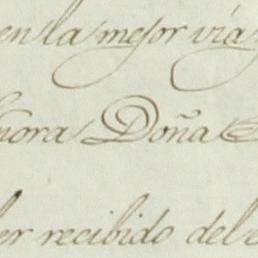 en la mejor vía
ñora Doña
er recibido del